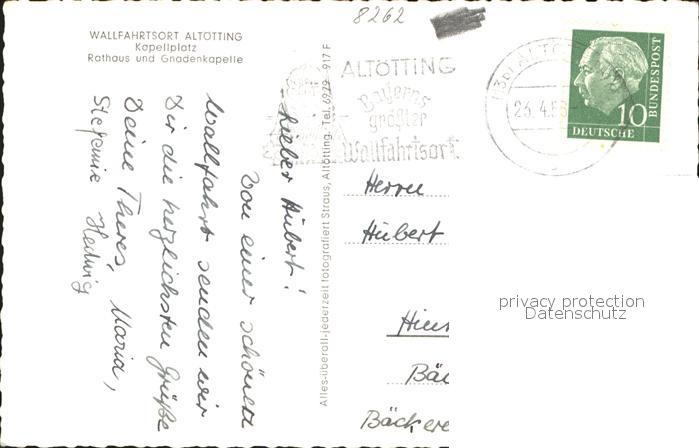 8262
WALLFAHRTSORT ALTÖTTING
Kapellplatz
Rathaus und Gnadenkapelle
Lieber Hubert!
Von einer schönen
Wallfahrt senden wir
Dir die herzlichsten Grüße
Deine Theres, Maria,
Stefanie Hedwig
Alles-überall-jederzeit fotografiert Straus, Altötting. Tel. 6979 917 F
ALTÖTTING
Bayerns
größter
Wallfahrtsort
23.4.5
10
DEUTSCHE
BUNDESPOST
Herrn
Hubert
Bäckere
privacy protection
Datenschutz